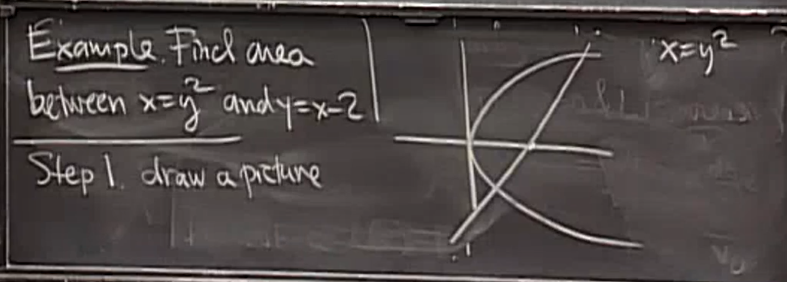 Example. Find area
between x=y² and y=x-2
Step 1. draw a picture
x=y²